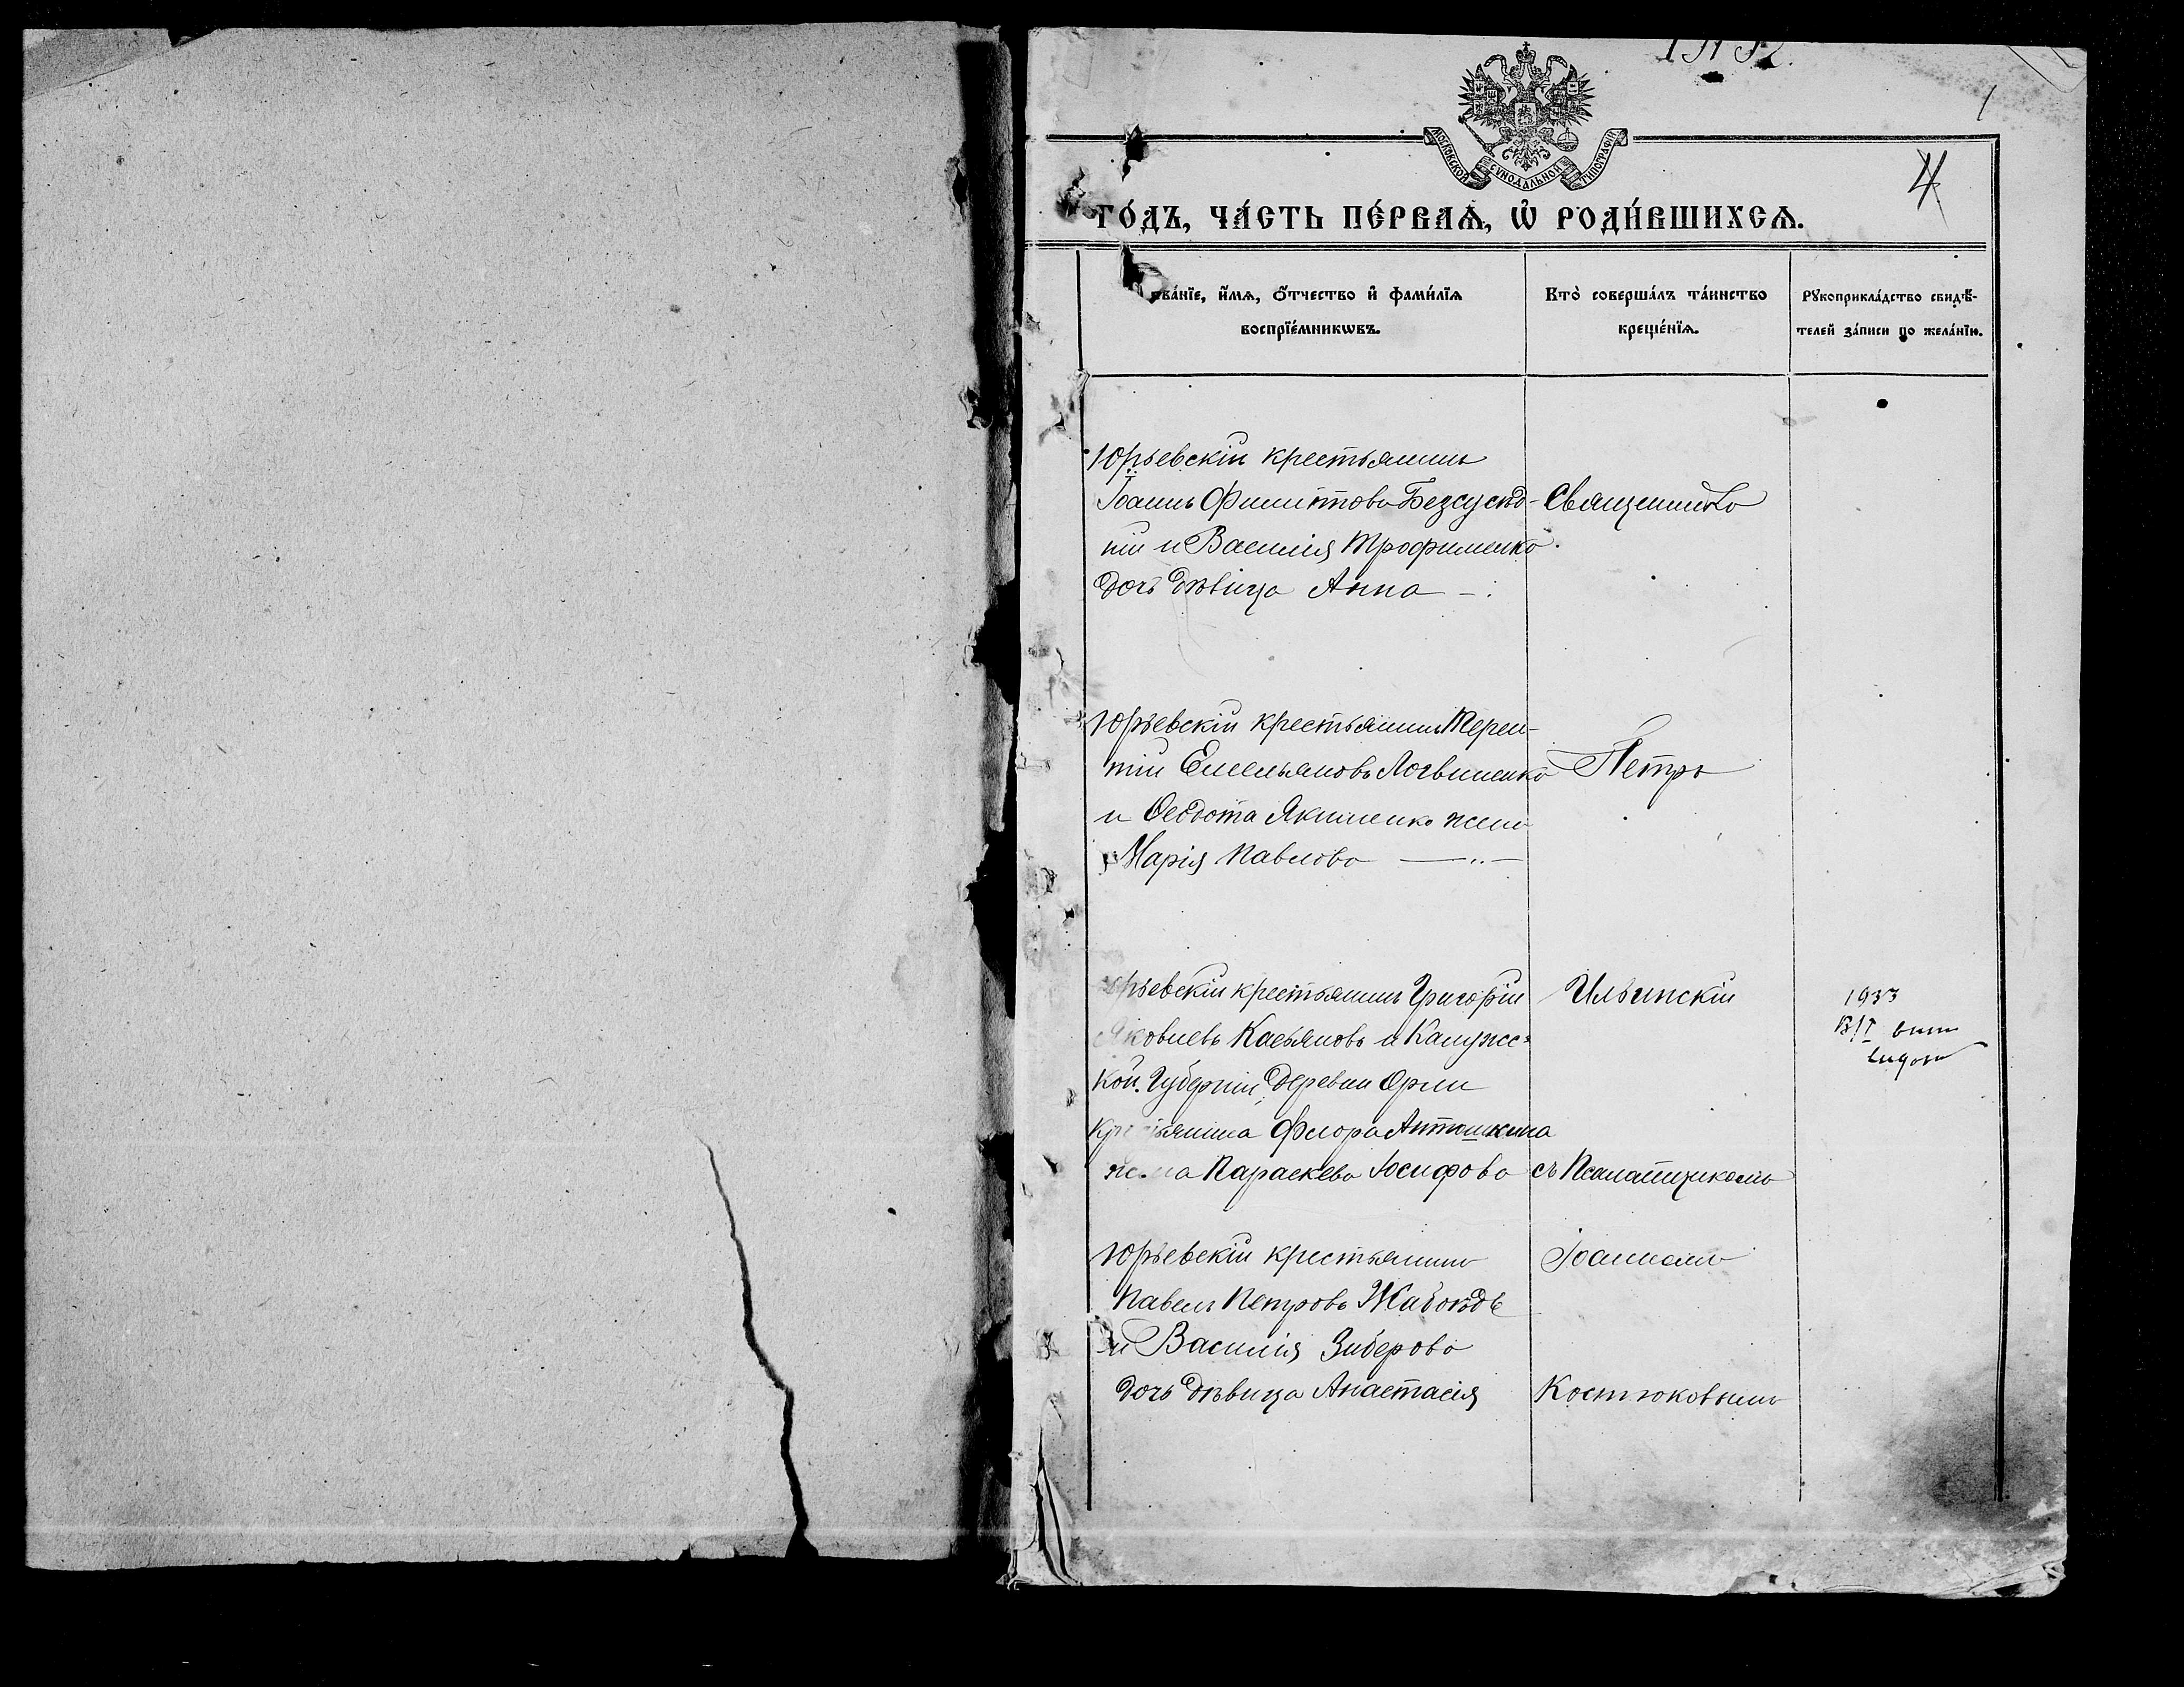 1
4
МОСКОВСКОЙ СѴНОДАЛЬНОЙ ТИПОГРАФІИ
ГО́ДЪ, ЧА́СТЬ ПЕ́РВАѦ, Ѡ҆ РОДИ́ВШИХСѦ.
ва́нїе, и҆́мѧ, ѻ҆́тчество и҆ фами́лїѧ
воспрїе́мникѡвъ.
Кто̀ соверша́лъ та́инство
креще́нїѧ.
Рꙋкоприкла́дство свидѣ́-
телей за́писи по жела́нїю.
Юрьевскій крестьянинъ
Іоаннъ Филиповъ Безсусѣд-
ній и Василія Трофименко
дочь дѣвица Анна
Священникъ
Юрьевскій крестьянинъ Терен-
тій Емельяновъ Логвиненко
и Ѳеодота Якименко жена
Марія Павлова
Петръ
Юрьевскій крестьянинъ Григорій
Яковлевъ Касьяновъ и Калужс-
кой Губерніи, деревни Орли
крестьянина Флора Антюшкина
жена Параскева Іосифова
Ильинскій
съ Псаломщикомъ
1933
Юрьевскій крестьянинъ
Павелъ Петровъ Жабоѣдъ
и Василія Зиберова
дочь дѣвица Анастасія
Іоанномъ
Костюковымъ